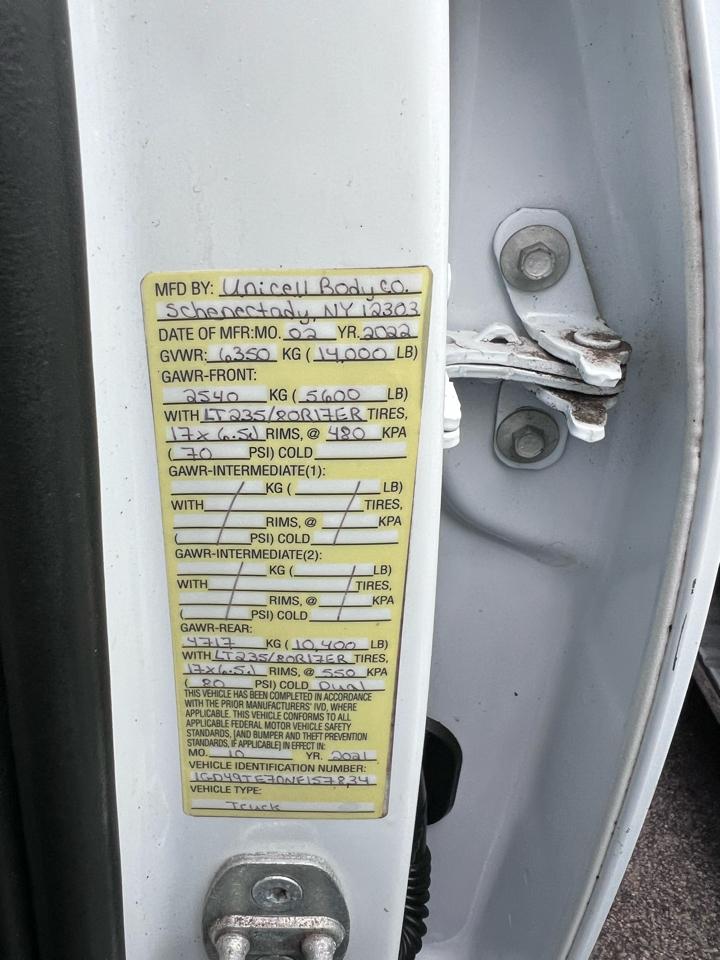 MFD BY: Unicell Body Co.
Schenectady, NY 12303
DATE OF MFR: MO. 02 YR. 2022
GVWR: 6350 KG ( 14,000 LB)
GAWR-FRONT:
2540 KG ( 5600 LB)
WITH LT235/80R17ER TIRES,
17x6.5J RIMS, @ 480 KPA
( 70 PSI) COLD
GAWR-INTERMEDIATE(1):
/ KG ( / LB)
WITH / / TIRES,
/ RIMS, @ / KPA
( / PSI) COLD /
GAWR-INTERMEDIATE(2):
/ KG ( / LB)
WITH / / TIRES,
/ RIMS, @ / KPA
( / PSI) COLD /
GAWR-REAR:
4717 KG ( 10,400 LB)
WITH LT235/80R17ER TIRES,
17x6.5J RIMS, @ 550 KPA
( 80 PSI) COLD Dual
THIS VEHICLE HAS BEEN COMPLETED IN ACCORDANCE
WITH THE PRIOR MANUFACTURERS' IVD, WHERE
APPLICABLE. THIS VEHICLE CONFORMS TO ALL
APPLICABLE FEDERAL MOTOR VEHICLE SAFETY
STANDARDS, [AND BUMPER AND THEFT PREVENTION
STANDARDS, IF APPLICABLE] IN EFFECT IN:
MO. 10 YR. 2021
VEHICLE IDENTIFICATION NUMBER:
1GD49TE70NE157834
VEHICLE TYPE:
Truck